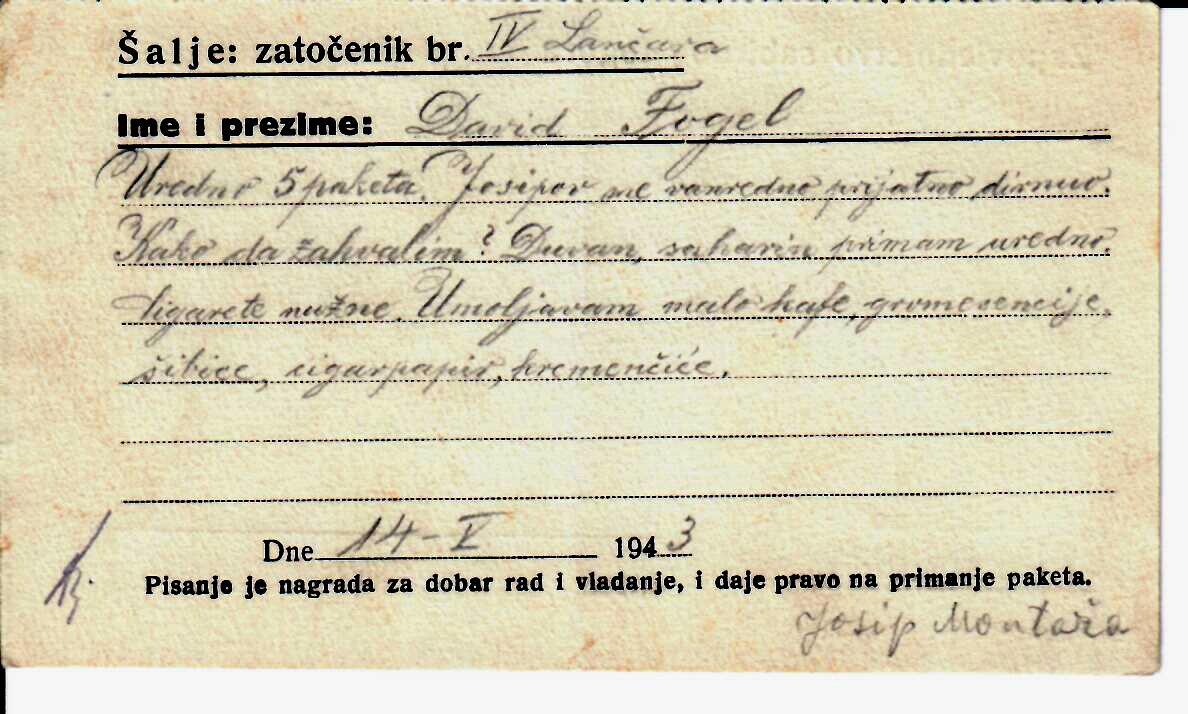 Šalje: zatočenik br. IV Lančara
Ime i prezime: David Fogel
Uredno 5 paketa. Josipov me vanredno prijatno dirnuo.
Kako da zahvalim? Duvan, saharin primam uredno.
Cigarete nužne. Umoljavam malo kafe, gromesencije,
šibice, cigarpapir, kremenčiće.
Dne 14-V 1943
Pisanje je nagrada za dobar rad i vladanje, i daje pravo na primanje paketa.
Josip Montaža